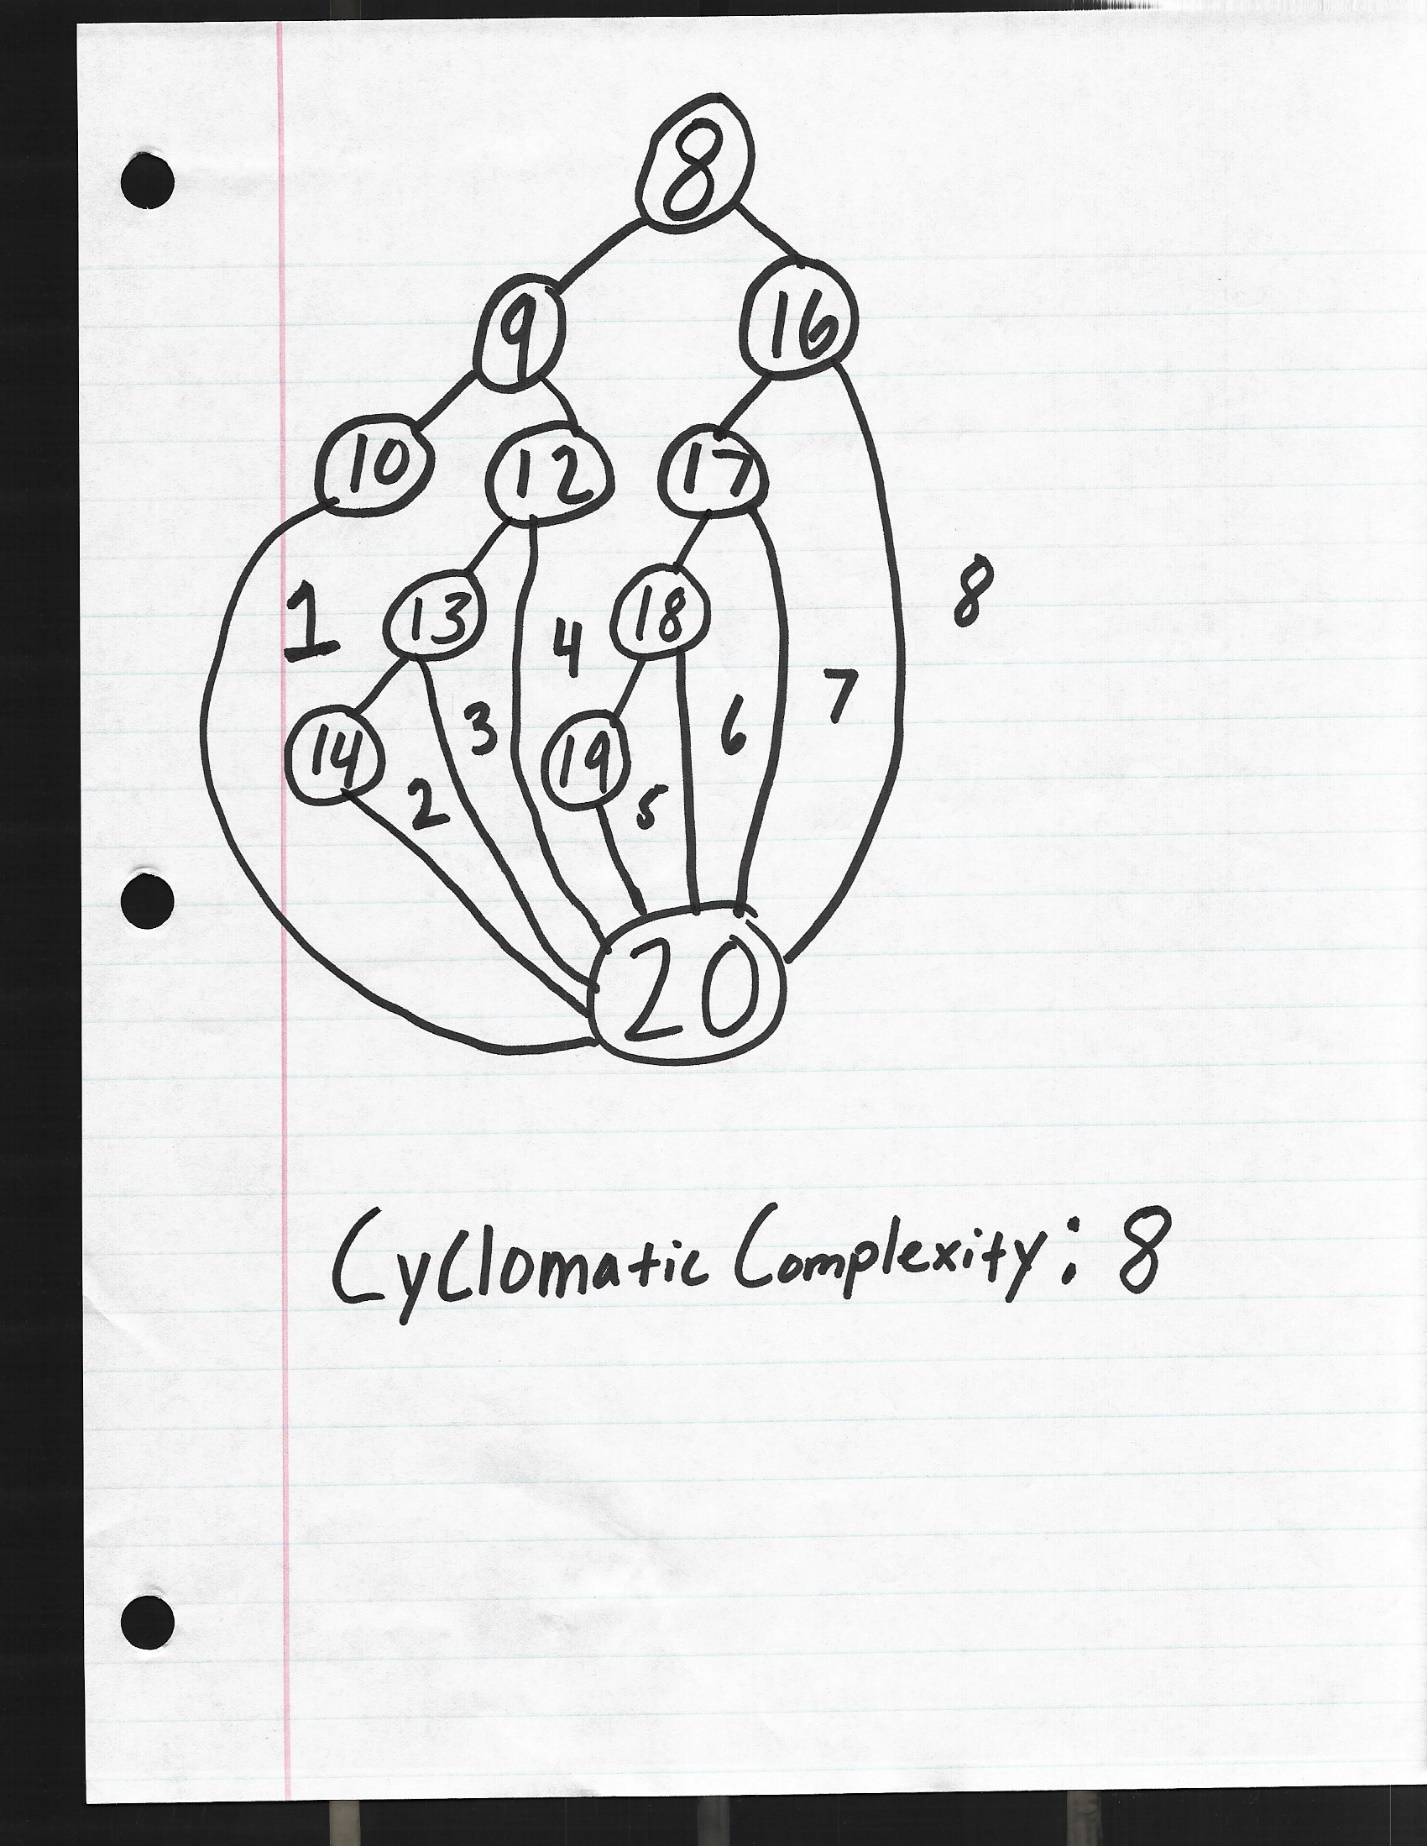 8
9 16
10 12 17
1 13 4 18 8
14 2 3 19 5 6 7
20
Cyclomatic Complexity: 8